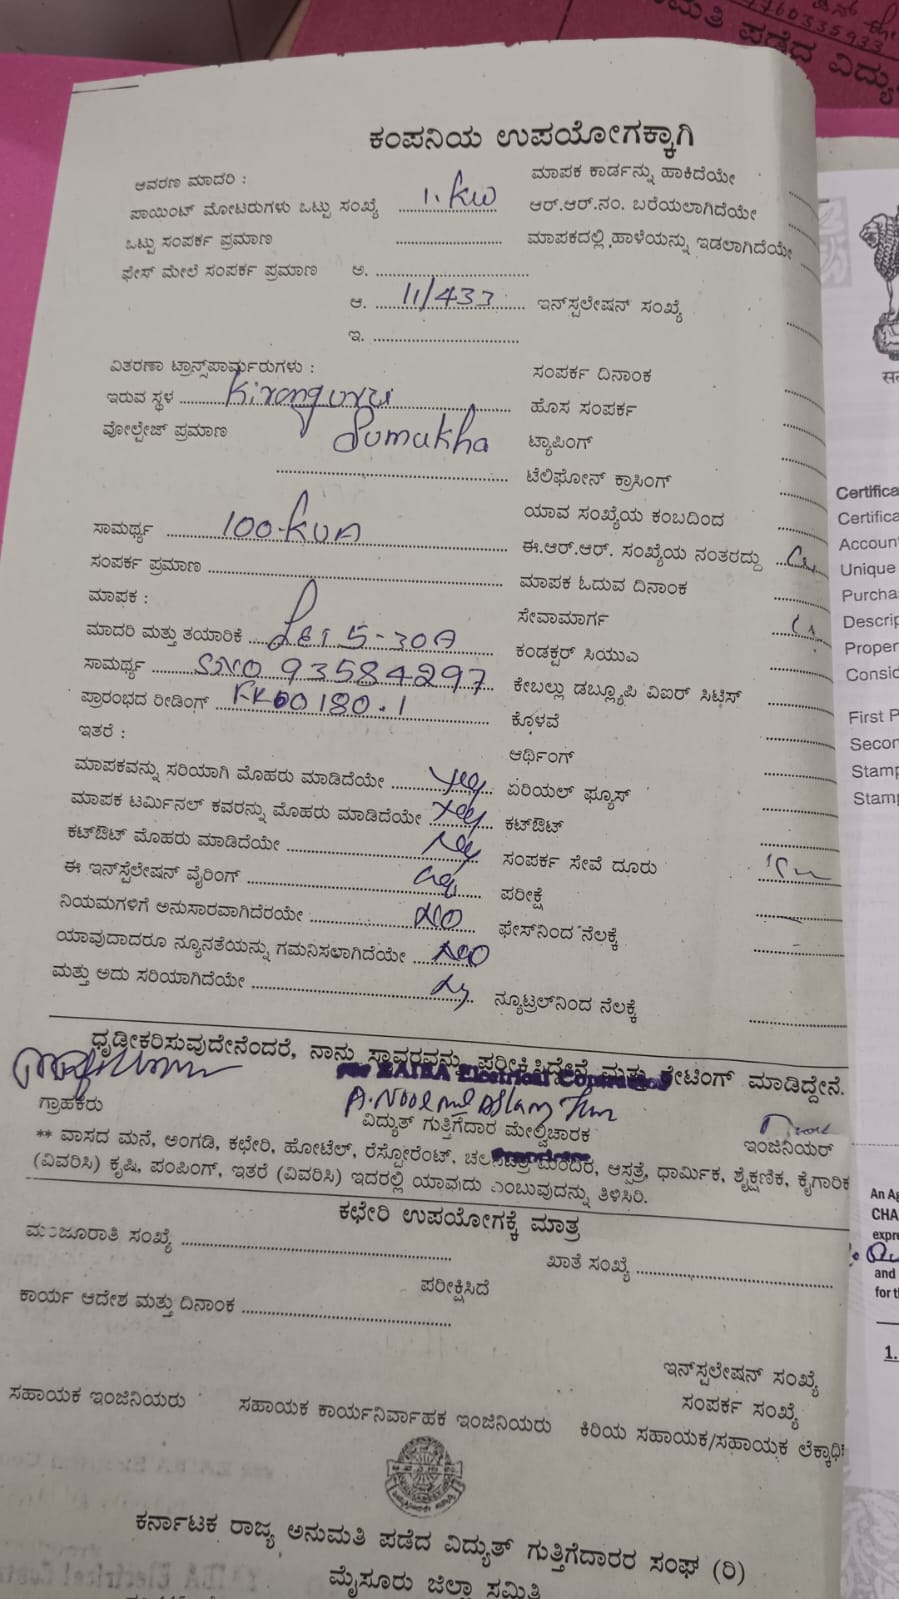 9760335933
ಮತಿ ಪಡೆದ ವಿದ್ಯು
ಕಂಪನಿಯ ಉಪಯೋಗಕ್ಕಾಗಿ
ಆವರಣ ಮಾದರಿ : ಮಾಪಕ ಕಾರ್ಡನ್ನು ಹಾಕಿದೆಯೇ
ಪಾಯಿಂಟ್ ಮೋಟರುಗಳು ಒಟ್ಟು ಸಂಖ್ಯೆ 1. kw ಆರ್.ಆರ್.ನಂ. ಬರೆಯಲಾಗಿದೆಯೇ
ಒಟ್ಟು ಸಂಪರ್ಕ ಪ್ರಮಾಣ ಮಾಪಕದಲ್ಲಿ ಹಾಳೆಯನ್ನು ಇಡಲಾಗಿದೆಯೇ
ಫೇಸ್ ಮೇಲೆ ಸಂಪರ್ಕ ಪ್ರಮಾಣ ಅ.
ಆ. 11/433 ಇನ್‌ಸ್ಪಲೇಷನ್ ಸಂಖ್ಯೆ
ಇ.
ವಿತರಣಾ ಟ್ರಾನ್ಸ್‌ಫಾರ್ಮರುಗಳು : ಸಂಪರ್ಕ ದಿನಾಂಕ
ಇರುವ ಸ್ಥಳ ಹೊಸ ಸಂಪರ್ಕ
ವೋಲ್ಟೇಜ್ ಪ್ರಮಾಣ Sumukha ಟ್ಯಾಪಿಂಗ್
ಟೆಲಿಫೋನ್ ಕ್ರಾಸಿಂಗ್
ಯಾವ ಸಂಖ್ಯೆಯ ಕಂಬದಿಂದ
ಸಾಮರ್ಥ್ಯ 100 kVA ಈ.ಆರ್.ಆರ್. ಸಂಖ್ಯೆಯ ನಂತರದ್ದು
ಸಂಪರ್ಕ ಪ್ರಮಾಣ ಮಾಪಕ ಓದುವ ದಿನಾಂಕ
ಮಾಪಕ : ಸೇವಾಮಾರ್ಗ
ಮಾದರಿ ಮತ್ತು ತಯಾರಿಕೆ 5-30A ಕಂಡಕ್ಟರ್ ಸಿಯುಎ
ಸಾಮರ್ಥ್ಯ SNO 93584297 ಕೇಬಲ್ಲು ಡಬ್ಲ್ಯೂಪಿ ವಿಐರ್ ಸಿಟ್ರಿಸ್
ಪ್ರಾರಂಭದ ರೀಡಿಂಗ್ 00180.1 ಕೊಳವೆ
ಇತರೆ : ಆರ್ಥಿಂಗ್
ಮಾಪಕವನ್ನು ಸರಿಯಾಗಿ ಮೊಹರು ಮಾಡಿದೆಯೇ yes ಏರಿಯಲ್ ಫ್ಯೂಸ್
ಮಾಪಕ ಟರ್ಮಿನಲ್ ಕವರನ್ನು ಮೊಹರು ಮಾಡಿದೆಯೇ yes ಕಟ್‌ಔಟ್
ಕಟ್‌ಔಟ್ ಮೊಹರು ಮಾಡಿದೆಯೇ ಸಂಪರ್ಕ ಸೇವೆ ದೂರು
ಈ ಇನ್‌ಸ್ಪೆಲೇಷನ್ ವೈರಿಂಗ್ ಪರೀಕ್ಷೆ
ನಿಯಮಗಳಿಗೆ ಅನುಸಾರವಾಗಿದೆರಯೇ NO ಫೇಸ್‌ನಿಂದ ನೆಲಕ್ಕೆ
ಯಾವುದಾದರೂ ನ್ಯೂನತೆಯನ್ನು ಗಮನಿಸಲಾಗಿದೆಯೇ
ಮತ್ತು ಅದು ಸರಿಯಾಗಿದೆಯೇ ನ್ಯೂಟ್ರಲ್‌ನಿಂದ ನೆಲಕ್ಕೆ
ಧೃಢೀಕರಿಸುವುದೇನೆಂದರೆ, ನಾನು ಸ್ಥಾವರವನ್ನು ಪರೀಕ್ಷಿಸಿದ್ದೇನೆ ಮತ್ತು ರೇಟಿಂಗ್ ಮಾಡಿದ್ದೇನೆ.
For RAIBA Electrical Contractor
ಗ್ರಾಹಕರು ವಿದ್ಯುತ್ ಗುತ್ತಿಗೆದಾರ ಮೇಲ್ವಿಚಾರಕ ಇಂಜಿನಿಯರ್
** ವಾಸದ ಮನೆ, ಅಂಗಡಿ, ಕಛೇರಿ, ಹೋಟೆಲ್, ರೆಸ್ಟೋರೆಂಟ್, ಚಲನಚಿತ್ರ ಮಂದಿರ, ಆಸ್ಪತ್ರೆ, ಧಾರ್ಮಿಕ, ಶೈಕ್ಷಣಿಕ, ಕೈಗಾರಿಕ
(ವಿವರಿಸಿ) ಕೃಷಿ, ಪಂಪಿಂಗ್, ಇತರೆ (ವಿವರಿಸಿ) ಇದರಲ್ಲಿ ಯಾವುದು ಎಂಬುವುದನ್ನು ತಿಳಿಸಿರಿ.
ಕಛೇರಿ ಉಪಯೋಗಕ್ಕೆ ಮಾತ್ರ
ಮಂಜೂರಾತಿ ಸಂಖ್ಯೆ ಖಾತೆ ಸಂಖ್ಯೆ
ಪರೀಕ್ಷಿಸಿದೆ
ಕಾರ್ಯ ಆದೇಶ ಮತ್ತು ದಿನಾಂಕ
ಇನ್‌ಸ್ಪಲೇಷನ್ ಸಂಖ್ಯೆ
ಸಂಪರ್ಕ ಸಂಖ್ಯೆ
ಸಹಾಯಕ ಇಂಜಿನಿಯರು ಸಹಾಯಕ ಕಾರ್ಯನಿರ್ವಾಹಕ ಇಂಜಿನಿಯರು ಕಿರಿಯ ಸಹಾಯಕ/ಸಹಾಯಕ ಲೆಕ್ಕಾಧಿ
ಕರ್ನಾಟಕ ರಾಜ್ಯ ಅನುಮತಿ ಪಡೆದ ವಿದ್ಯುತ್ ಗುತ್ತಿಗೆದಾರರ ಸಂಘ (ರಿ)
ಮೈಸೂರು ಜಿಲ್ಲಾ ಸಮಿತಿ
Certifica
Certifica
Accoun
Unique
Purcha
Descrip
Proper
Consid
First P
Secon
Stamp
Stamp
An Ag
CHA
expre
and
for th
1.